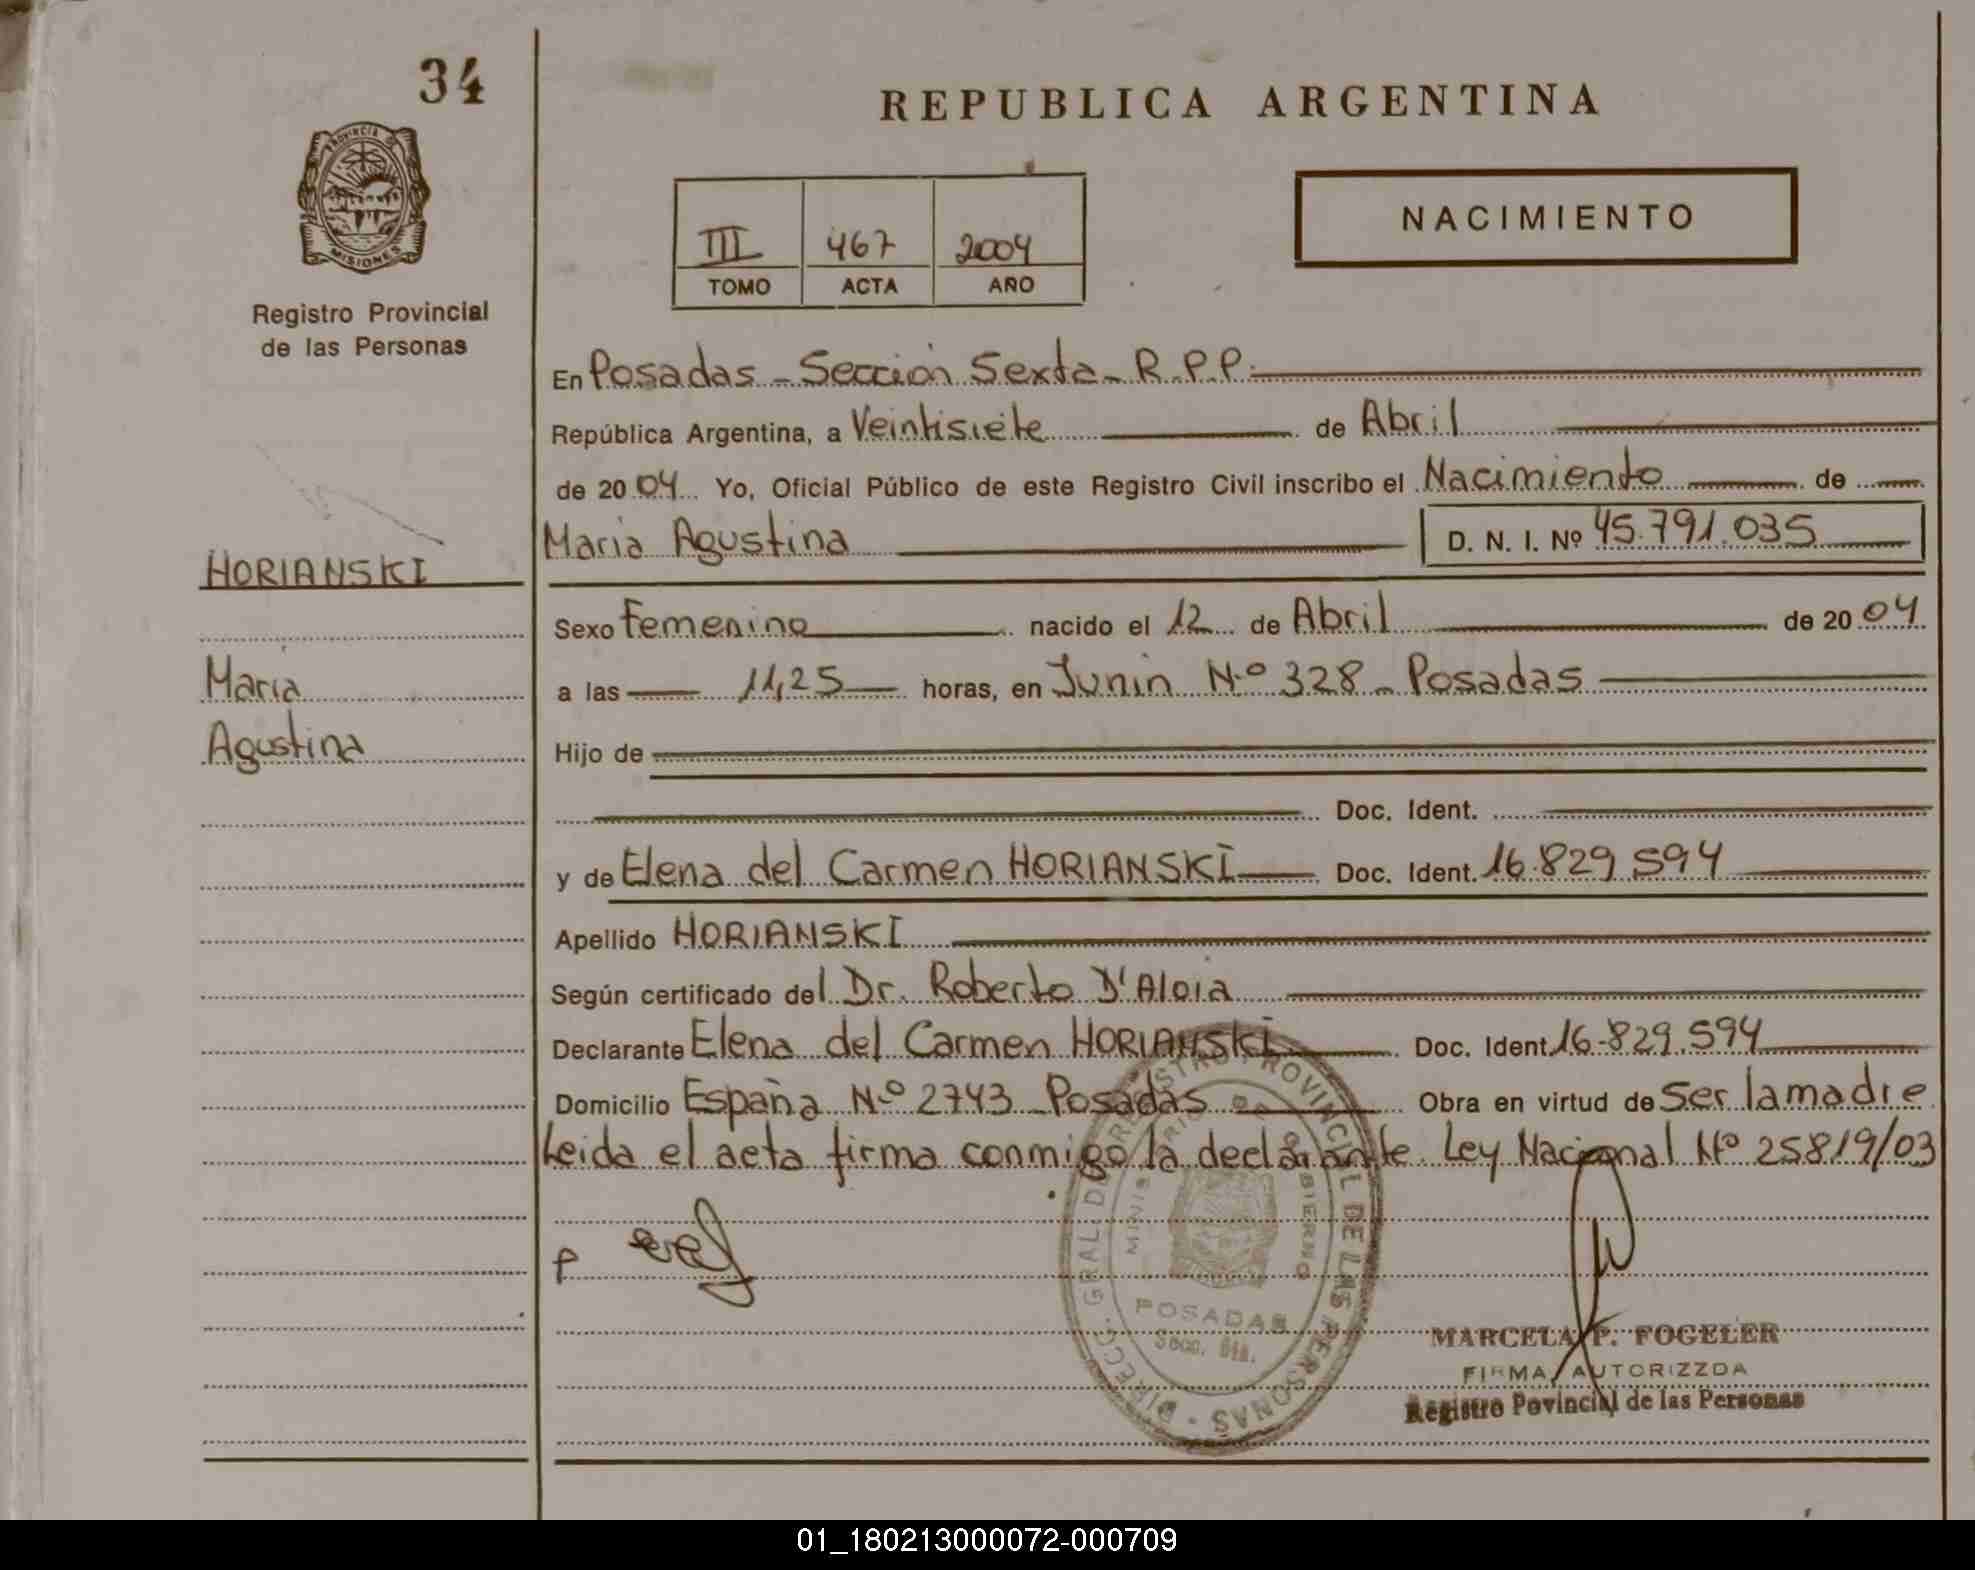 34
REPUBLICA ARGENTINA
PROVINCIA DE
MISIONES
Registro Provincial
de las Personas
III 467 2004
TOMO ACTA AÑO
NACIMIENTO
En Posadas - Sección Sexta - R.P.P.
República Argentina, a Veintisiete de Abril
de 2004 Yo, Oficial Público de este Registro Civil inscribo el Nacimiento de
Maria Agustina D. N. I. Nº 45.791.035
HORIANSKI
Maria
Agustina
Sexo Femenino nacido el 12 de Abril de 2004
a las 11,25 horas, en Junin Nº 328 - Posadas
Hijo de
Doc. Ident.
y de Elena del Carmen HORIANSKI Doc. Ident. 16.829.594
Apellido HORIANSKI
Según certificado del Dr. Roberto D'Aloia
Declarante Elena del Carmen HORIANSKI Doc. Ident 16.829.594
Domicilio España Nº 2743 - Posadas Obra en virtud de Ser la madre
Leida el acta firma conmigo la declarante Ley Nacional Nº 25819/03
DIRECC. GRAL. DEL REGISTRO PROVINCIAL DE LAS PERSONAS
POSADAS
Secc. 6ta.
MARCELA P. FOGELER
FIRMA AUTORIZZDA
Registro Povincial de las Personas
01_180213000072-000709